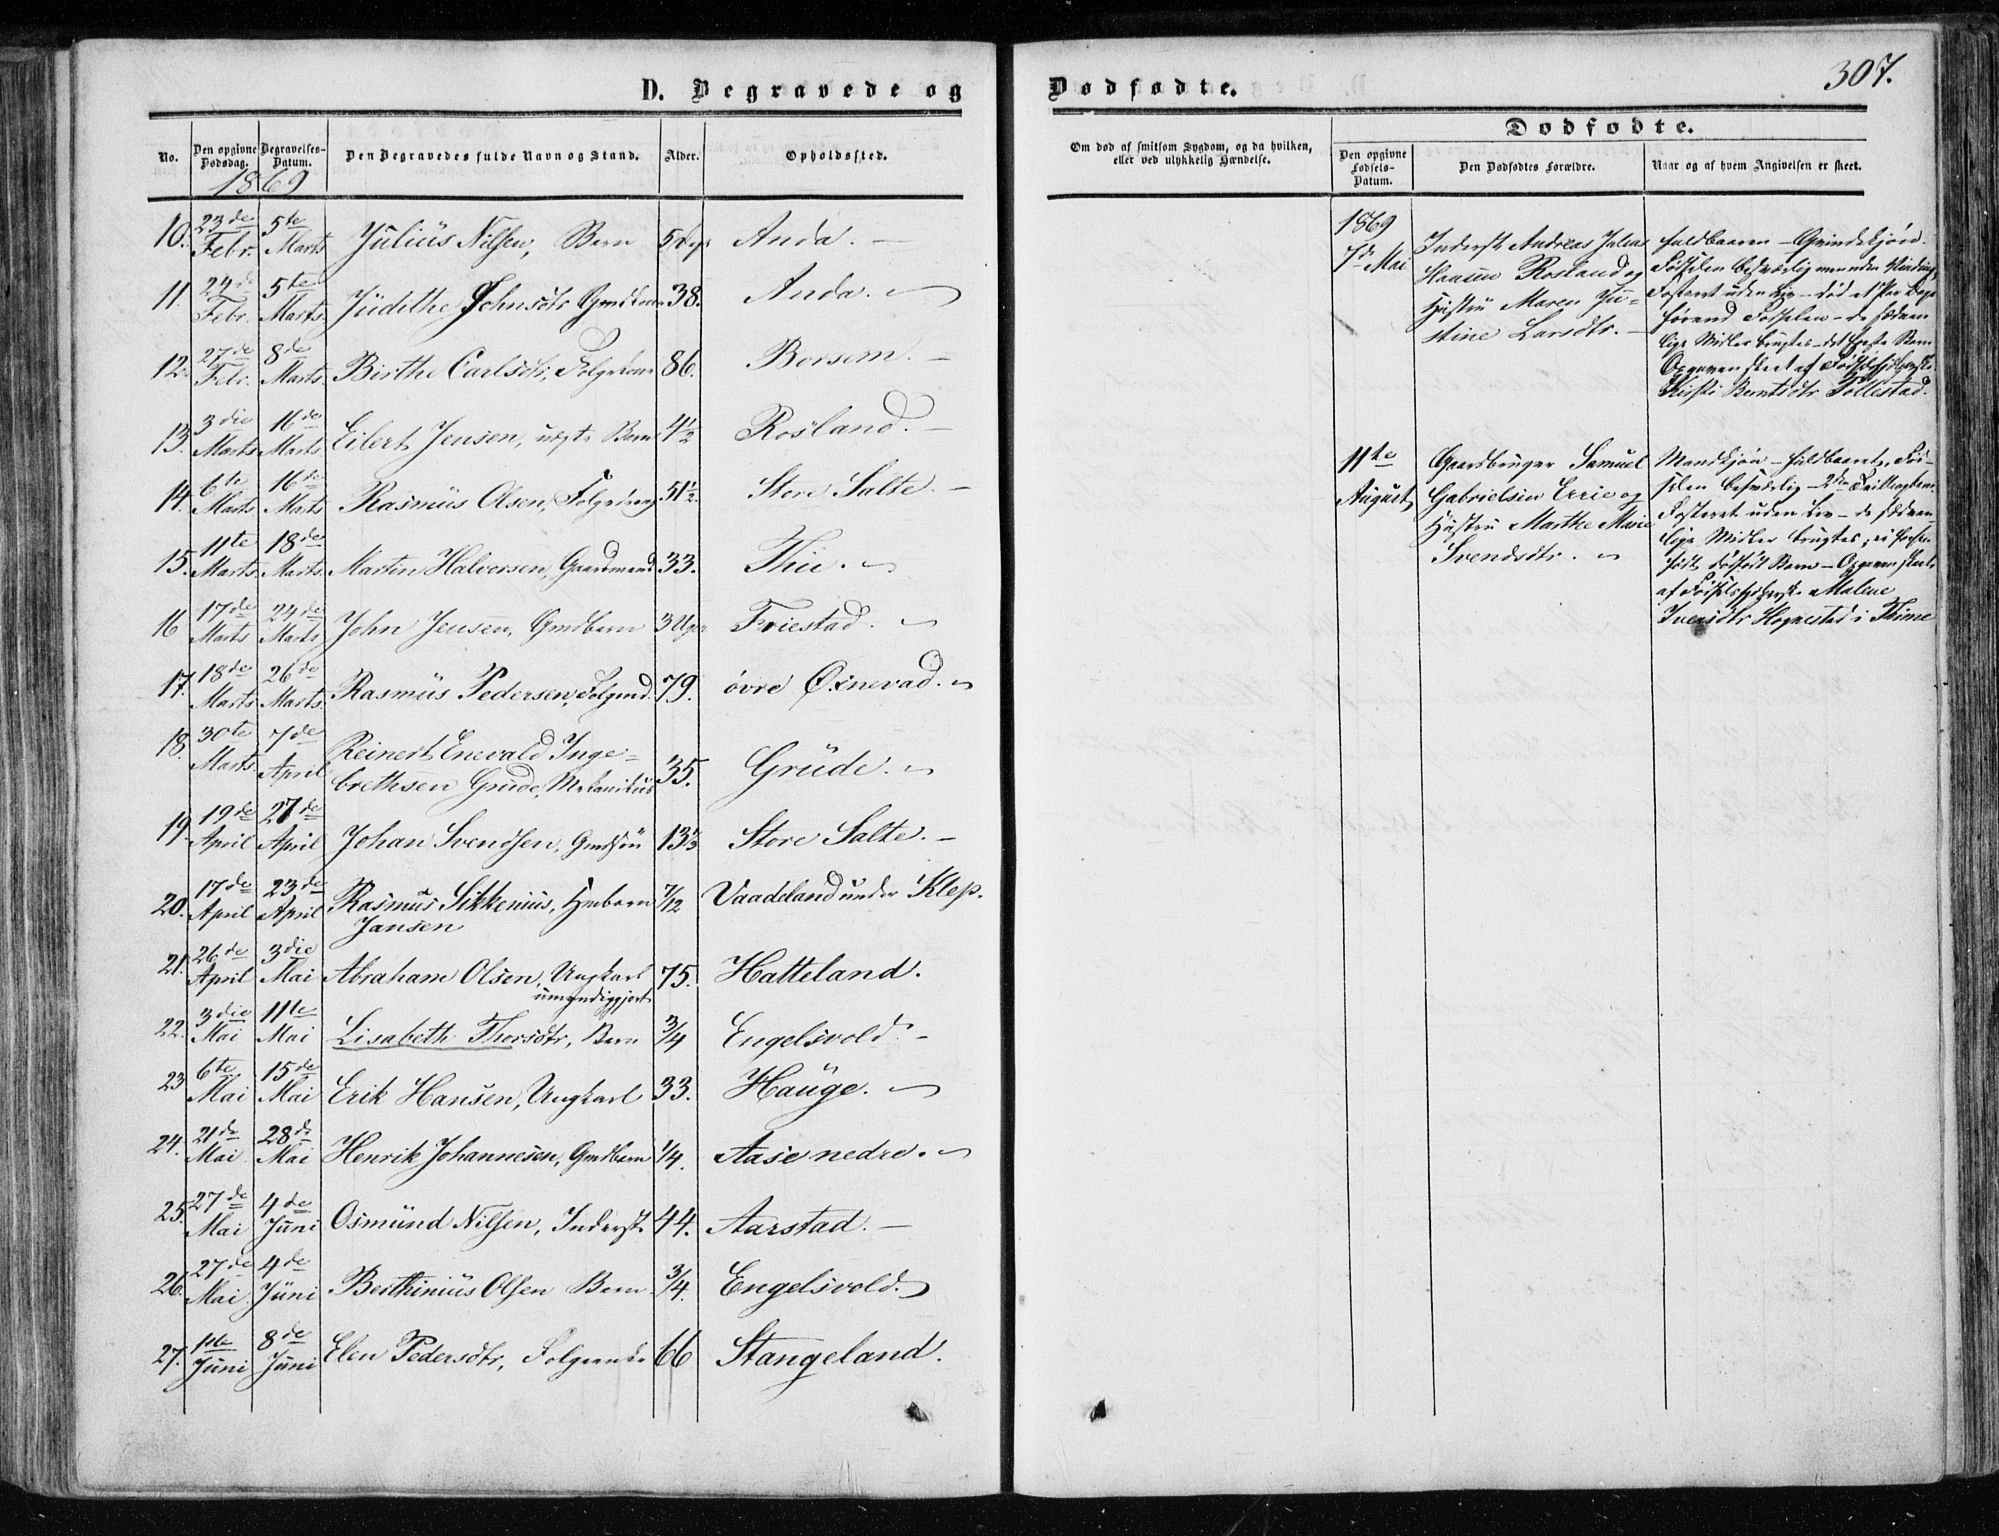 D. Begravede og
No.
Den opgivne Dødsdag.
Begravelses-Datum.
Den Begravedes fulde Navn og Stand.
Alder.
Opholdssted.
1869
10. 23de Febr. 5te Marts Julius Nilsen, Barn 5 Dage Anda. –
11. 24de Febr. 5te Marts Judithe Johnsdtr Gmdkone 38. Anda. –
12. 27de Febr. 8de Marts Birthe Carlsdtr, Folgekone 86. Borsem. –
13. 3die Marts 16de Marts Eilert Jensen, uægte Barn 4½ Rosland. –
14. 6te Marts 16de Marts Rasmus Olsen, 51½. Store Salte. –
15. 11te Marts 18de Marts Martin Halvorsen, Gaardmand 33. Thu. –
16 17de Marts 24de Marts John Jensen, Gmdbarn 3 Uger Friestad. –
17. 18de Marts 26de Marts Rasmus Pedersen, Folgmd. 79. øvre Øxnevad. –
18. 30te Marts 7de April Reinert Enevald Inge-
brethsen Grude, Mekanikus 35. Grude. –
19. 19de April 27de April Johan Svendsen, Gmdsøn 13⅓ Store Salte. –
20. 17de April 23de April Rasmus Sikkenius, Hmbarn 7/12 Vaadeland under Klep.
Jansen
21. 26de April 3die Mai Abraham Olsen, Ungkarl 75. Hatteland.
umyndiggjort
22. 3die Mai 11te Mai Lisabeth Thorsdtr, Barn 3/4 Engelsvold. –
23 6te Mai 15de Mai Erik Hansen, Ungkarl 33. Hauge. –
24. 21de Mai 28de Mai Henrik Johannesen, Gmdbarn 1/4. Aase nedre. –
25. 27de Mai 4de Juni Osmund Nilsen, Inderst 44. Aarstad. –
26. 27de Mai 4de Juni Berthinius Olsen Barn 3/4. Engelsvold. –
27. 1ste Juni 8de Juni Elen Pedersdtr, Folgeenke 66 Stangeland.
Dødfødte.
307.
Om død af smitsom Sygdom, og da hvilken,
eller ved ulykkelig Hændelse.
Dødfødte.
Den opgivne Fødsels-Datum.
Den Dødfødtes Forældre.
Naar og af hvem Angivelsen er skeet.
1869
7de Mai
Inderst Andreas Julius
Haasen Rosland og
Hustru Maren Ju-
stine Larsdtr. –
fuldbaaren – Qvindekjøn.
Fødselen besværlig men uden Vending,
Fosteret uden Liv – død et Par Dage
førend Fødselen – de sædvan
lige Midler brugtes – det første Barn
Opgaven skeet af Fødselshjelperske
Kirsti Berntsdtr Tollestad.
11te August
Gaardbruger Samuel
Gabrielsen Erric og
Hustru Marthe Marie
Svendsdtr. –
Mandkjøn – fuldbaaret, Fød-
selen besværlig –
Fosteret uden Liv – de sædvan-
lige Midler brugtes,
født dødfødt Barn – Opgaven skeet
af Fødselshjelperske Malene
Iversdtr Hognestad i Thime